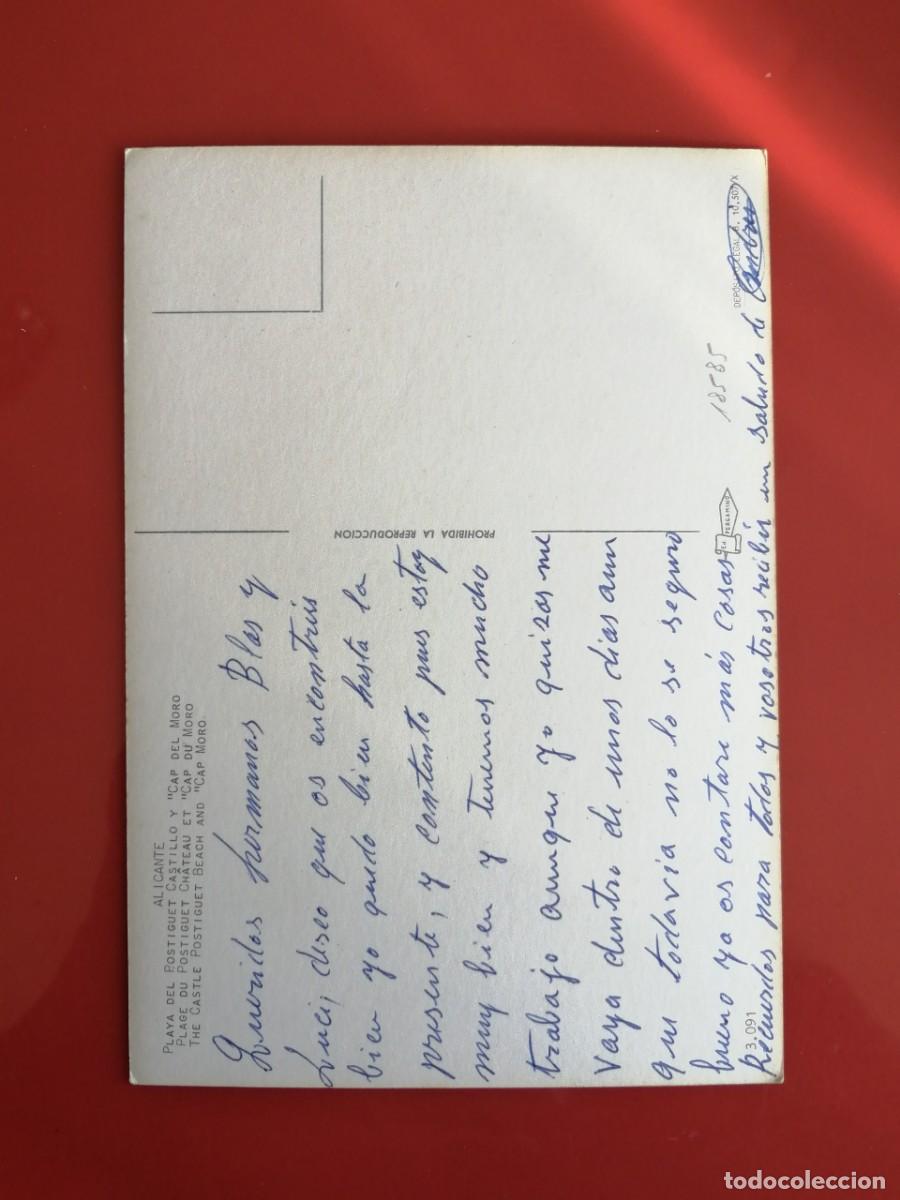 ALICANTE
PLAYA DEL POSTIGUET CASTILLO Y "CAP DEL MORO
PLAGE DU POSTIGUET CHÂTEAU ET "CAP DU MORO
THE CASTLE POSTIGUET BEACH AND "CAP MORO.
Queridos hermanos Blas y
Luci, deseo que os encontreis
bien yo quedo bien hasta la
presente, y contento pues estoy
muy bien y tenemos mucho
trabajo aunque yo quizas me
vaya dentro de unos dias aun
que todavia no lo se seguro
bueno ya os contare más cosas
Recuerdos para todos y vosotros recibir un saludo de
3.091
PROHIBIDA LA REPRODUCCION
PERGAMINO
18585
DEPÓSITO LEGAL B. 10.507/X
todocoleccion